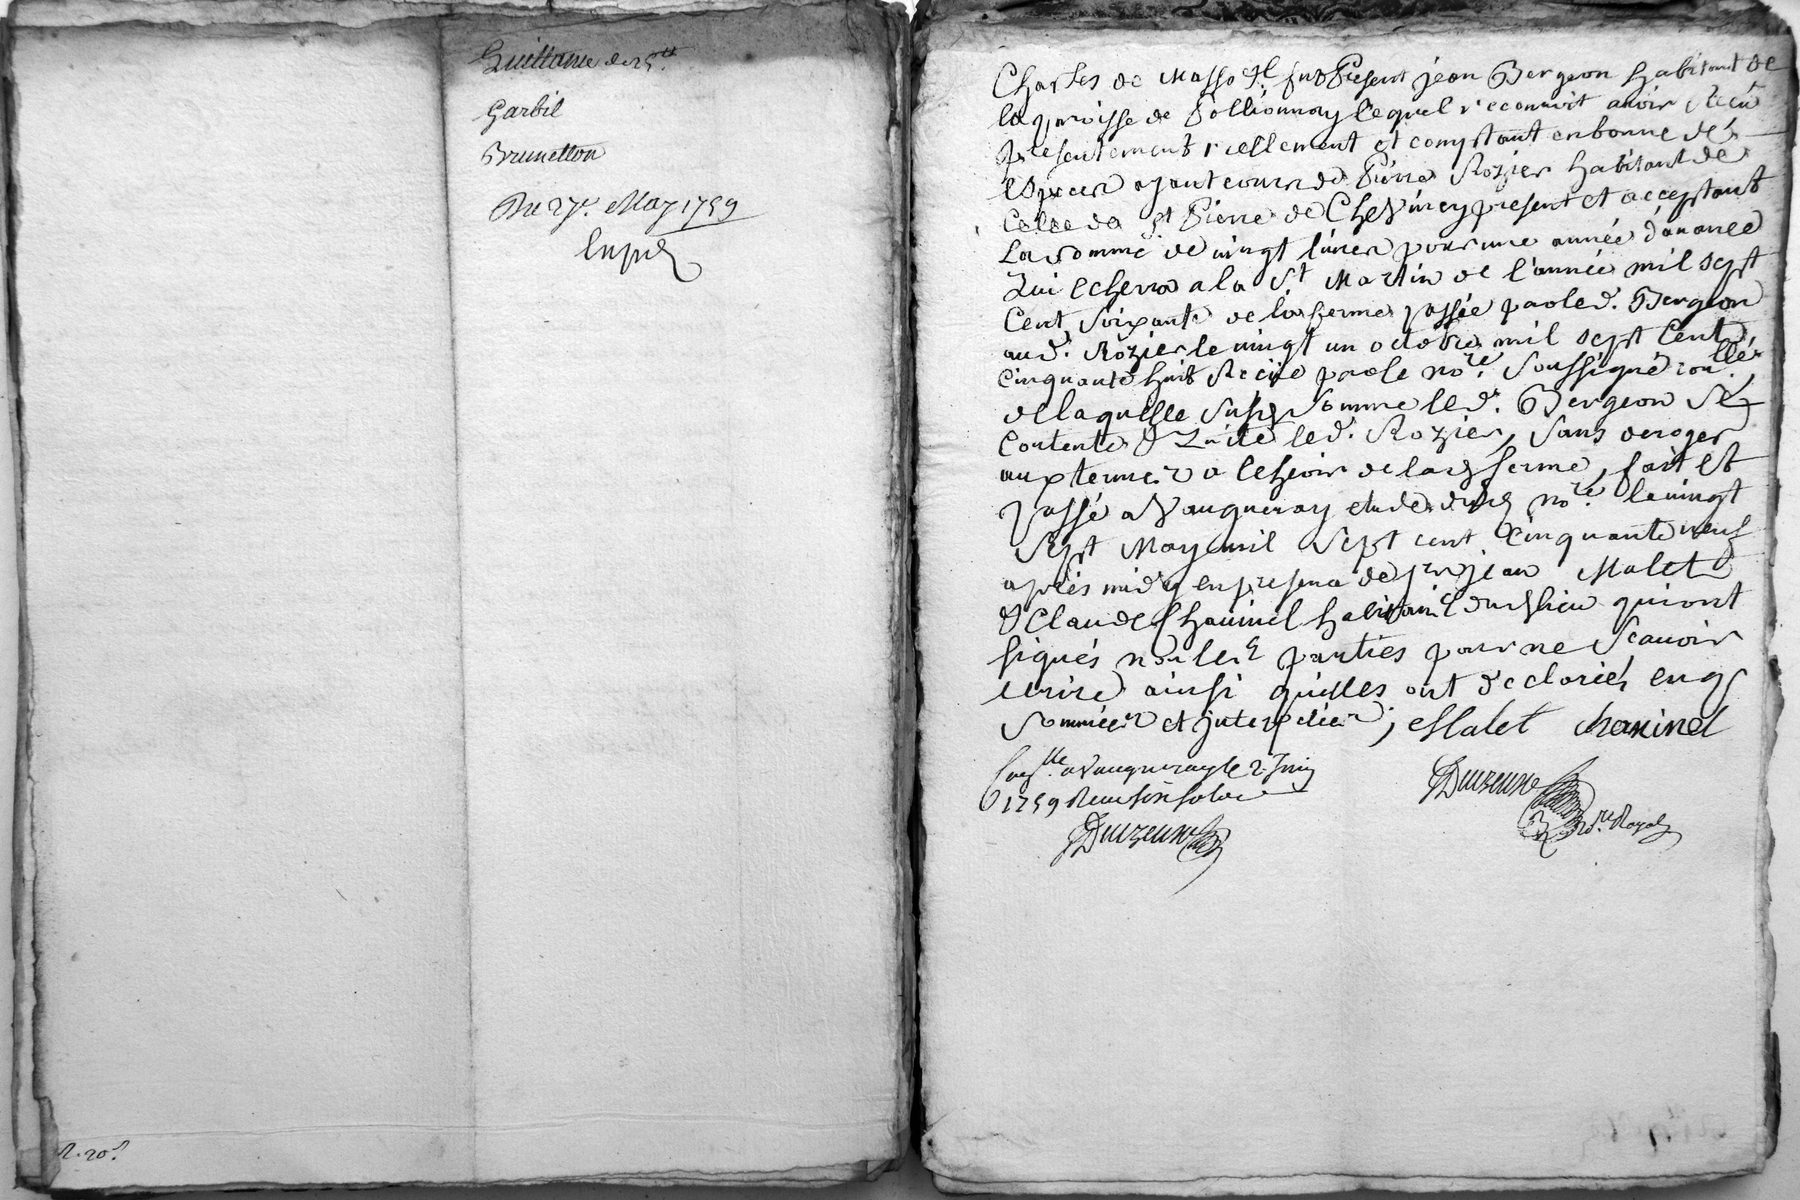 Guillaume de 25ᵗᵗ
Garbil
Brunetton
Du 27e. May 1759
Exped
R. 20s
Charles de Masso &c. fut Present jean Bergeon habitant de
la paroisse de Pollionnay lequel reconnoit avoir Recu
presentement reellement et comptant en bonne des
especes ayant cours de Pierre Rozier habitant de
Celle de St Pierre de Chevinay present et acceptant
La somme de vingt livres pour une année d'avance
Qui echerra a la St Martin de l'année mil sept
Cent Soixante de la ferme passée par led. Bergeon
aud. Rozier le vingt un octobre mil sept Cent
cinquante huit Recüe par le nore. Soussigné conllé.
de laquelle susd Somme led. Bergeon Se
Contente & Quitte led. Rozier, Sans deroger
aux termes a echeoir de lad ferme, fait et
passé a Vaugneray etude dud nore. le vingt
Sept May mil Sept cent Cinquante neuf
après midy en presence de jean Malet
& Claude Chaninel habitant dud lieu qui ont
signés non les parties pour ne Scavoir
ecrire ainsi qu'elles ont declarées enq
Sommées et interpelées, Malet chaninel
a Vaugneray le 2 Juin
1759 Recu six sols
Duizeune
Duizeune
No.re Royal